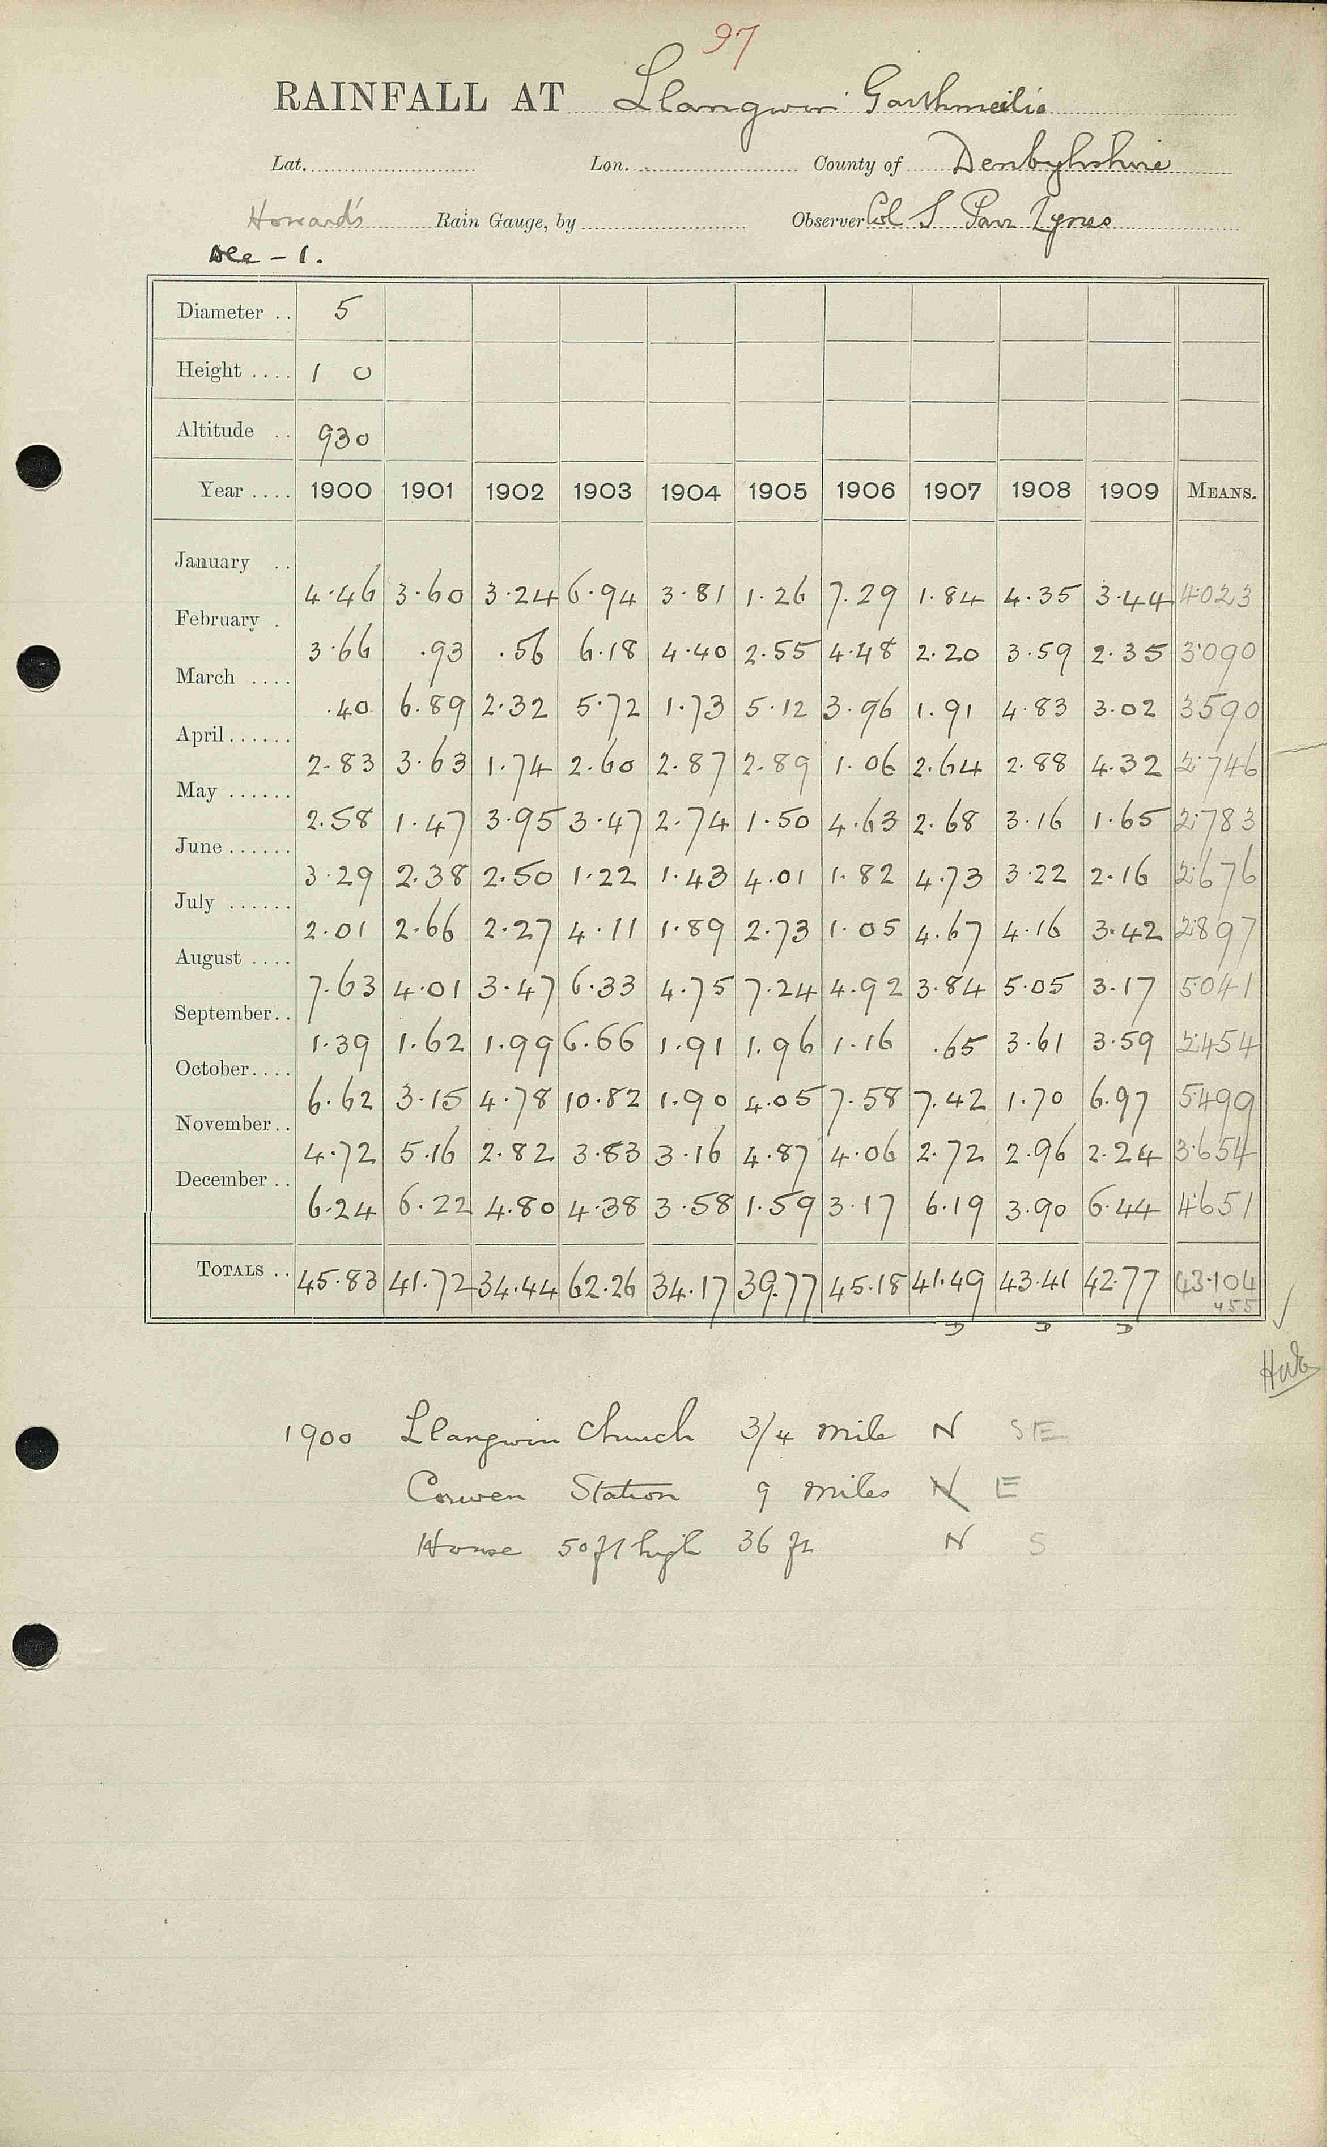 97
RAINFALL AT Llangwin Garthmeilio
Lat. Lon. County of Denbighshire
Howard's Rain Gauge, by Observer Col S Parr Lynes
Dec - 1.
Diameter .. 5
Height .... 1 0
Altitude .. 930
Year .... 1900 1901 1902 1903 1904 1905 1906 1907 1908 1909 MEANS.
January .. 4.46 3.60 3.24 6.94 3.81 1.26 7.29 1.84 4.35 3.44 4.023
February . 3.66 .93 .56 6.18 4.40 2.55 4.48 2.20 3.59 2.35 3.090
March .... .40 6.89 2.32 5.72 1.73 5.12 3.96 1.91 4.83 3.02 3590
April ...... 2.83 3.63 1.74 2.60 2.87 2.89 1.06 2.64 2.88 4.32 2.746
May ...... 2.58 1.47 3.95 3.47 2.74 1.50 4.63 2.68 3.16 1.65 2.783
June ...... 3.29 2.38 2.50 1.22 1.43 4.01 1.82 4.73 3.22 2.16 2.676
July ...... 2.01 2.66 2.27 4.11 1.89 2.73 1.05 4.67 4.16 3.42 2.897
August .... 7.63 4.01 3.47 6.33 4.75 7.24 4.92 3.84 5.05 3.17 5.041
September .. 1.39 1.62 1.99 6.66 1.91 1.96 1.16 .65 3.61 3.59 2.454
October .... 6.62 3.15 4.78 10.82 1.90 4.05 7.58 7.42 1.70 6.97 5.499
November .. 4.72 5.16 2.82 3.83 3.16 4.87 4.06 2.72 2.96 2.24 3.654
December .. 6.24 6.22 4.80 4.38 3.58 1.59 3.17 6.19 3.90 6.44 4.651
TOTALS .. 45.83 41.72 34.44 62.26 34.17 39.77 45.18 41.49 43.41 42.77 43.104
455
D D D
1900 Llangwin Church 3/4 mile N SE
Corwen Station 9 miles N E
House 50 ft high 36 ft N S